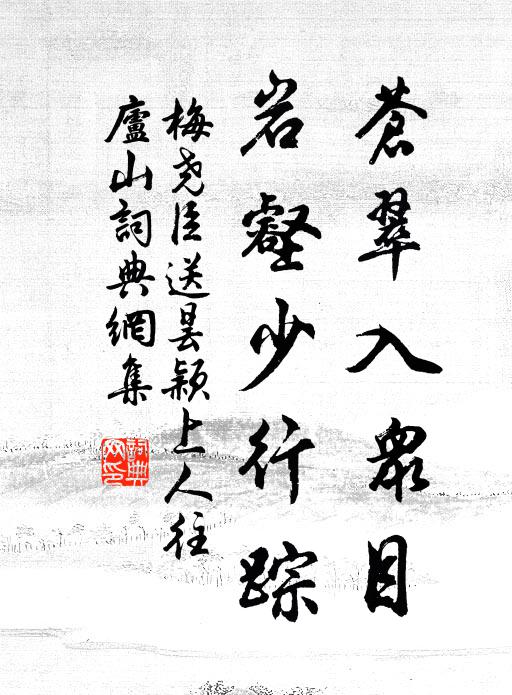 蒼翠入眾目
岩壑少行踪
梅堯臣送曇穎上人往
廬山詞典網集
詞典网印